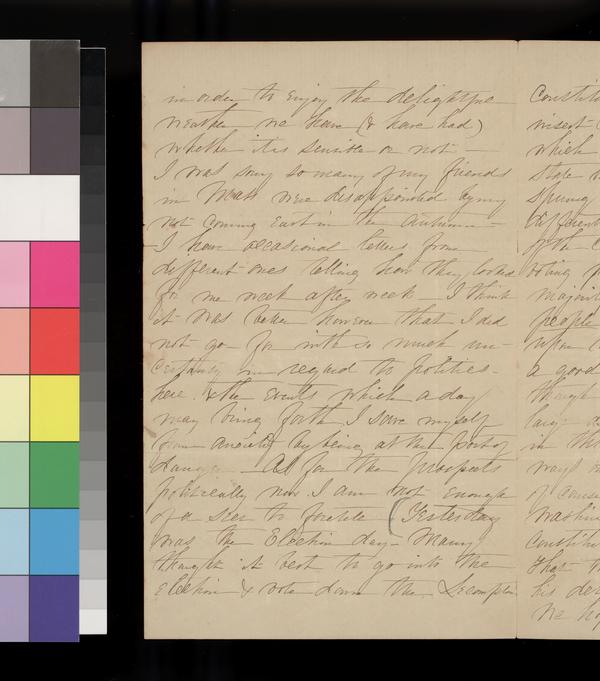 in order to enjoy the delightful
weather we have (& have had)
whether it is sensible or not —
I was sorry so many of my friends
in Mass were disappointed by my
not coming East in the Autumn —
I have occasional letters from
different ones telling how they looked
for me week after week. I think
it was better however that I did
not go for with so much un-
certainty in regard to politics
here & the events which a day
may bring forth, I save myself
from anxiety by being at the post of
danger — As for the prospects
politically now I am not enough
of a seer to foretell (Yesterday
was the Election day — Many
thought it best to go into the
Election & vote down the Lecompton
Constitu
which
State
sprung
different
for the C
voting
majori
people
upon
a good
though
large
in th
ways
of
Washin
Constitu
that
his
We hop